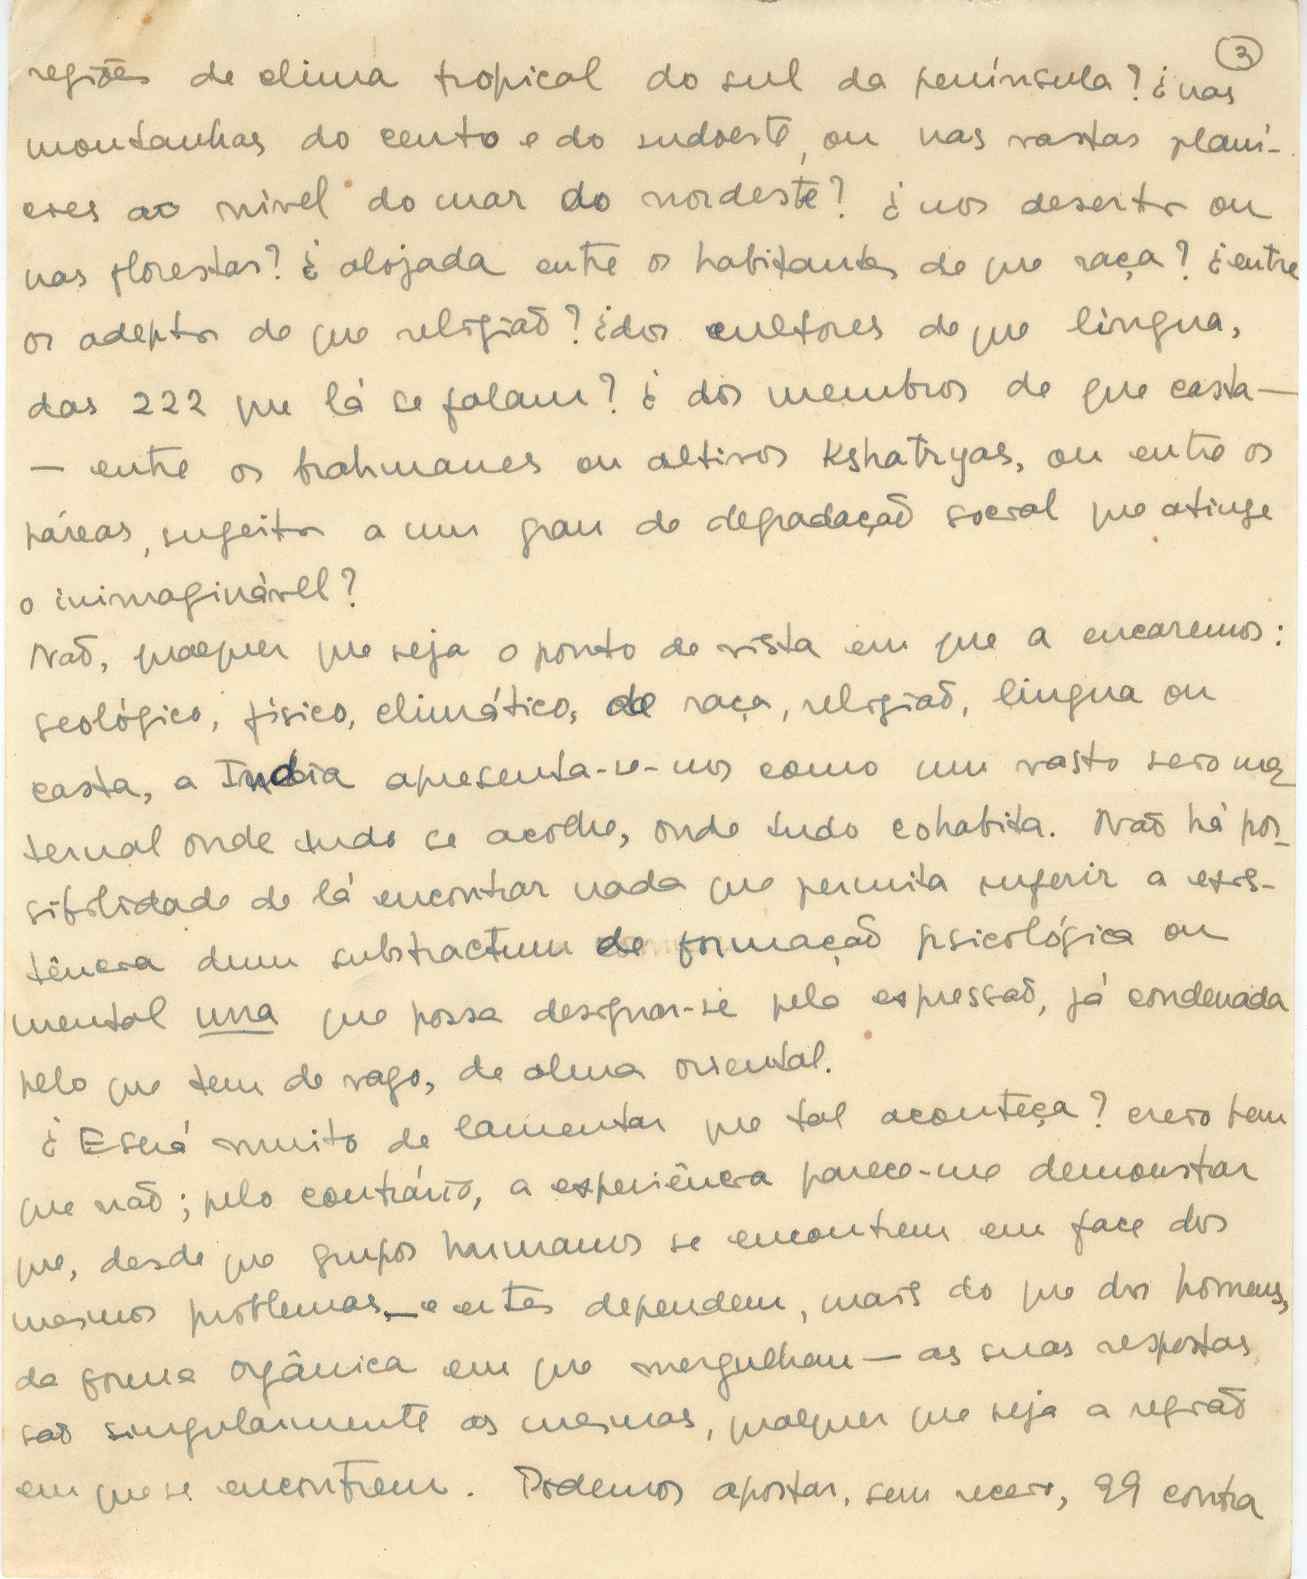 3
regiões de clima tropical do sul da península? ¿ nas
montanhas do cento e do sudoeste, ou nas vastas planí-
cies ao nível do mar do nordeste? ¿ nos desertos ou
nas florestas? ¿ alojada entre os habitantes de que raça? ¿ entre
os adeptos de que religião? ¿ dos cultores de que língua,
das 222 que lá se falam? ¿ dos membros de que casta —
— entre os brahmanes ou altivos Kshatryas, ou entre os
páreas, sugeitos a um grau de degradação social que atinge
o inimaginável?
Não, qualquer que seja o ponto de vista em que a encaremos:
geológico, físico, climático, de raça, religião, língua ou
casta, a India apresenta-se-nos como um vasto seio ma
ternal onde tudo se acolhe, onde tudo cohabita. Não há pos-
sibilidade de lá encontrar nada que permita sugerir a exis-
tência dum substractum de formação psicológica ou
mental una que possa designar-se pela expressão, já condenada
pelo que tem de vago, de alma oriental.
¿ Será muito de lamentar que tal aconteça? creio bem
que não; pelo contrário, a experiência parece-me demonstrar
que, desde que grupos humanos se encontrem em face dos
mesmos problemas, — e estes dependem, mais do que dos homens,
da forma orgânica em que mergulham — as suas respostas
são singularmente as mesmas, qualquer que seja a região
em que se encontrem. Podemos apostar, sem receio, 99 contra